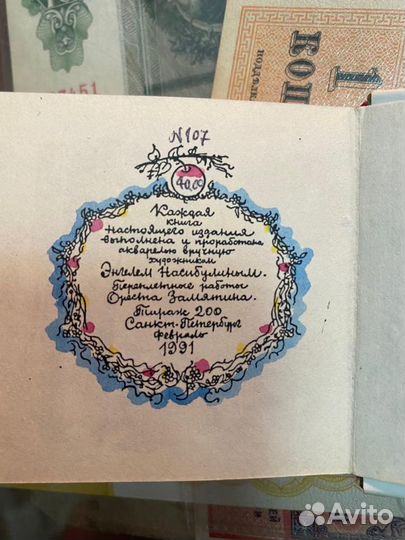 7451
1
КОП
ПОДДѢЛ
N107
40.00
Каждая
книга
настоящего издания
выполнена и проработана
акварелью вручную
художником
Энгелем Насибулиным.
Переплетные работы
Ореста Замятина.
Тираж 200
Санкт-Петербург
февраль
1991
Avito